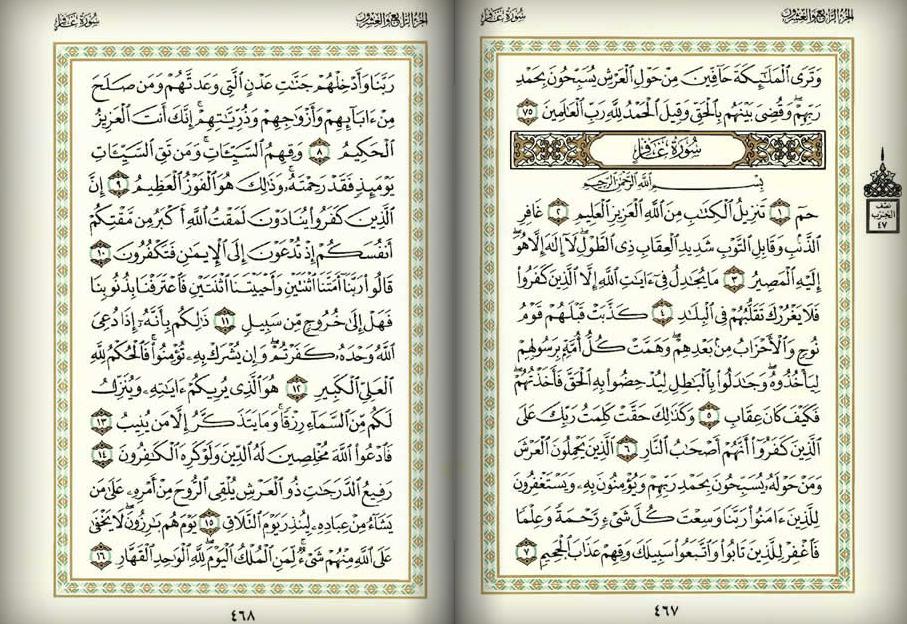 الجزء الرابع والعشرون
سورة غافر
وَتَرَى ٱلْمَلَٰٓئِكَةَ حَآفِّينَ مِنْ حَوْلِ ٱلْعَرْشِ يُسَبِّحُونَ بِحَمْدِ
رَبِّهِمْ ۖ وَقُضِىَ بَيْنَهُم بِٱلْحَقِّ وَقِيلَ ٱلْحَمْدُ لِلَّهِ رَبِّ ٱلْعَٰلَمِينَ ٧٥
سُورَةُ غَافِرٍ
بِسْمِ ٱللَّهِ ٱلرَّحْمَٰنِ ٱلرَّحِيمِ
حمٓ ١ تَنزِيلُ ٱلْكِتَٰبِ مِنَ ٱللَّهِ ٱلْعَزِيزِ ٱلْعَلِيمِ ٢ غَافِرِ
ٱلذَّنۢبِ وَقَابِلِ ٱلتَّوْبِ شَدِيدِ ٱلْعِقَابِ ذِى ٱلطَّوْلِ ۖ لَآ إِلَٰهَ إِلَّا هُوَ ۖ
إِلَيْهِ ٱلْمَصِيرُ ٣ مَا يُجَٰدِلُ فِىٓ ءَايَٰتِ ٱللَّهِ إِلَّا ٱلَّذِينَ كَفَرُوا۟
فَلَا يَغْرُرْكَ تَقَلُّبُهُمْ فِى ٱلْبِلَٰدِ ٤ كَذَّبَتْ قَبْلَهُمْ قَوْمُ
نُوحٍ وَٱلْأَحْزَابُ مِنۢ بَعْدِهِمْ ۖ وَهَمَّتْ كُلُّ أُمَّةٍۭ بِرَسُولِهِمْ
لِيَأْخُذُوهُ ۖ وَجَٰدَلُوا۟ بِٱلْبَٰطِلِ لِيُدْحِضُوا۟ بِهِ ٱلْحَقَّ فَأَخَذْتُهُمْ ۖ
فَكَيْفَ كَانَ عِقَابِ ٥ وَكَذَٰلِكَ حَقَّتْ كَلِمَتُ رَبِّكَ عَلَى
ٱلَّذِينَ كَفَرُوٓا۟ أَنَّهُمْ أَصْحَٰبُ ٱلنَّارِ ٦ ٱلَّذِينَ يَحْمِلُونَ ٱلْعَرْشَ
وَمَنْ حَوْلَهُۥ يُسَبِّحُونَ بِحَمْدِ رَبِّهِمْ وَيُؤْمِنُونَ بِهِۦ وَيَسْتَغْفِرُونَ
لِلَّذِينَ ءَامَنُوا۟ رَبَّنَا وَسِعْتَ كُلَّ شَىْءٍ رَّحْمَةً وَعِلْمًا
فَٱغْفِرْ لِلَّذِينَ تَابُوا۟ وَٱتَّبَعُوا۟ سَبِيلَكَ وَقِهِمْ عَذَابَ ٱلْجَحِيمِ ٧
٤٦٧
نصف
الحزب
٤٧
الجزء الرابع والعشرون
سورة غافر
رَبَّنَا وَأَدْخِلْهُمْ جَنَّٰتِ عَدْنٍ ٱلَّتِى وَعَدتَّهُمْ وَمَن صَلَحَ
مِنْ ءَابَآئِهِمْ وَأَزْوَٰجِهِمْ وَذُرِّيَّٰتِهِمْ ۚ إِنَّكَ أَنتَ ٱلْعَزِيزُ
ٱلْحَكِيمُ ٨ وَقِهِمُ ٱلسَّيِّـَٔاتِ ۚ وَمَن تَقِ ٱلسَّيِّـَٔاتِ
يَوْمَئِذٍ فَقَدْ رَحِمْتَهُۥ ۚ وَذَٰلِكَ هُوَ ٱلْفَوْزُ ٱلْعَظِيمُ ٩ إِنَّ
ٱلَّذِينَ كَفَرُوا۟ يُنَادَوْنَ لَمَقْتُ ٱللَّهِ أَكْبَرُ مِن مَّقْتِكُمْ
أَنفُسَكُمْ إِذْ تُدْعَوْنَ إِلَى ٱلْإِيمَٰنِ فَتَكْفُرُونَ ١٠
قَالُوا۟ رَبَّنَآ أَمَتَّنَا ٱثْنَتَيْنِ وَأَحْيَيْتَنَا ٱثْنَتَيْنِ فَٱعْتَرَفْنَا بِذُنُوبِنَا
فَهَلْ إِلَىٰ خُرُوجٍ مِّن سَبِيلٍ ١١ ذَٰلِكُم بِأَنَّهُۥٓ إِذَا دُعِىَ
ٱللَّهُ وَحْدَهُۥ كَفَرْتُمْ ۖ وَإِن يُشْرَكْ بِهِۦ تُؤْمِنُوا۟ ۚ فَٱلْحُكْمُ لِلَّهِ
ٱلْعَلِىِّ ٱلْكَبِيرِ ١٢ هُوَ ٱلَّذِى يُرِيكُمْ ءَايَٰتِهِۦ وَيُنَزِّلُ
لَكُم مِّنَ ٱلسَّمَآءِ رِزْقًا ۚ وَمَا يَتَذَكَّرُ إِلَّا مَن يُنِيبُ ١٣
فَٱدْعُوا۟ ٱللَّهَ مُخْلِصِينَ لَهُ ٱلدِّينَ وَلَوْ كَرِهَ ٱلْكَٰفِرُونَ ١٤
رَفِيعُ ٱلدَّرَجَٰتِ ذُو ٱلْعَرْشِ يُلْقِى ٱلرُّوحَ مِنْ أَمْرِهِۦ عَلَىٰ مَن
يَشَآءُ مِنْ عِبَادِهِۦ لِيُنذِرَ يَوْمَ ٱلتَّلَاقِ ١٥ يَوْمَ هُم بَٰرِزُونَ ۖ لَا يَخْفَىٰ
عَلَى ٱللَّهِ مِنْهُمْ شَىْءٌ ۚ لِّمَنِ ٱلْمُلْكُ ٱلْيَوْمَ ۖ لِلَّهِ ٱلْوَٰحِدِ ٱلْقَهَّارِ ١٦
٤٦٨